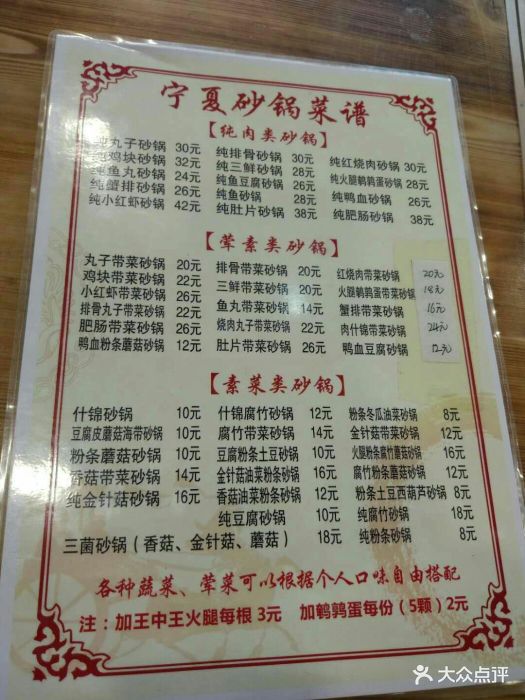 宁夏砂锅菜谱
【纯肉类砂锅】
纯丸子砂锅 30元 纯排骨砂锅 30元 纯红烧肉砂锅 30元
纯鸡块砂锅 32元 纯三鲜砂锅 28元 纯火腿鹌鹑蛋砂锅 28元
纯鱼丸砂锅 24元 纯鱼豆腐砂锅 26元 纯鸭血砂锅 26元
纯蟹排砂锅 26元 纯鱼砂锅 28元 纯肥肠砂锅 38元
纯小红虾砂锅 42元 纯肚片砂锅 38元
【荤素类砂锅】
丸子带菜砂锅 20元 排骨带菜砂锅 20元 红烧肉带菜砂锅 20元
鸡块带菜砂锅 22元 三鲜带菜砂锅 20元 火腿鹌鹑蛋带菜砂锅 18元
小红虾带菜砂锅 26元 鱼丸带菜砂锅 14元 蟹排带菜砂锅 16元
排骨丸子带菜砂锅 22元 烧肉丸子带菜砂锅 22元 肉什锦带菜砂锅 24元
肥肠带菜砂锅 26元 肚片带菜砂锅 26元 鸭血豆腐砂锅 12元
鸭血粉条蘑菇砂锅 12元
【素菜类砂锅】
什锦砂锅 10元 什锦腐竹砂锅 12元 粉条冬瓜油菜砂锅 8元
豆腐皮蘑菇海带砂锅 10元 腐竹带菜砂锅 14元 金针菇带菜砂锅 12元
粉条蘑菇砂锅 10元 豆腐粉条土豆砂锅 10元 火腿粉条腐竹蘑菇砂锅 16元
香菇带菜砂锅 14元 金针菇油菜粉条砂锅 16元 腐竹粉条蘑菇砂锅 12元
纯金针菇砂锅 16元 香菇油菜粉条砂锅 12元 粉条土豆西葫芦砂锅 8元
纯豆腐砂锅 10元 纯腐竹砂锅 18元
三菌砂锅（香菇、金针菇、蘑菇） 18元 纯粉条砂锅 8元
各种蔬菜、荤菜可以根据个人口味自由搭配
注：加王中王火腿每根 3元 加鹌鹑蛋每份（5颗）2元
大众点评